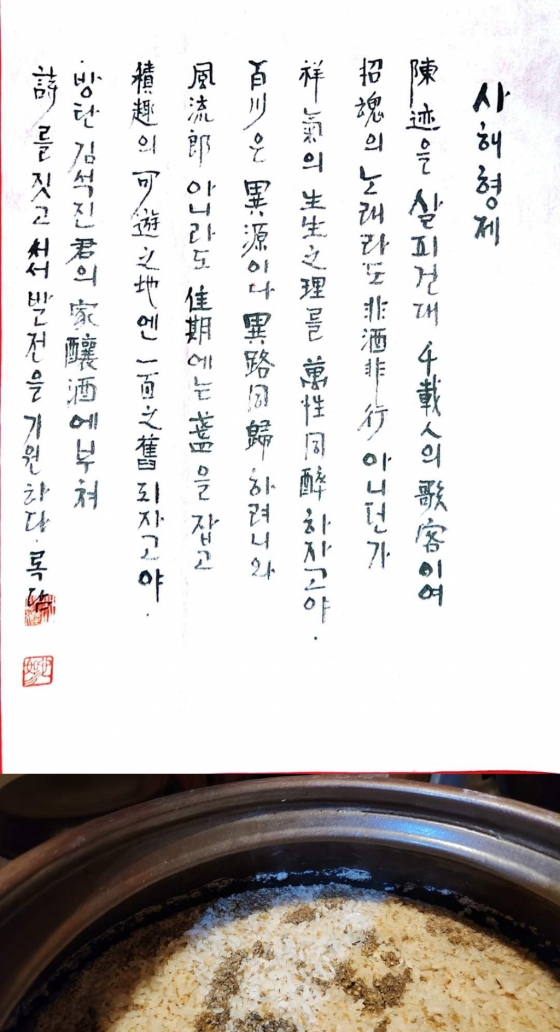 사해형제
陳迹을 살피건대 千載人의 歌客이여
招魂의 노래라도 非酒非行 아니던가
祥氣의 生生之理를 萬性同醉 하자고야.
百川은 異源이나 異路同歸 하려니와
風流郎 아니라도 佳期에는 盞을 잡고
積趣의 可遊之地엔 一面之舊 되자고야.
방탄 김석진 君의 家釀酒에 부쳐
詩를 짓고 써서 발전을 기원하다. 록담